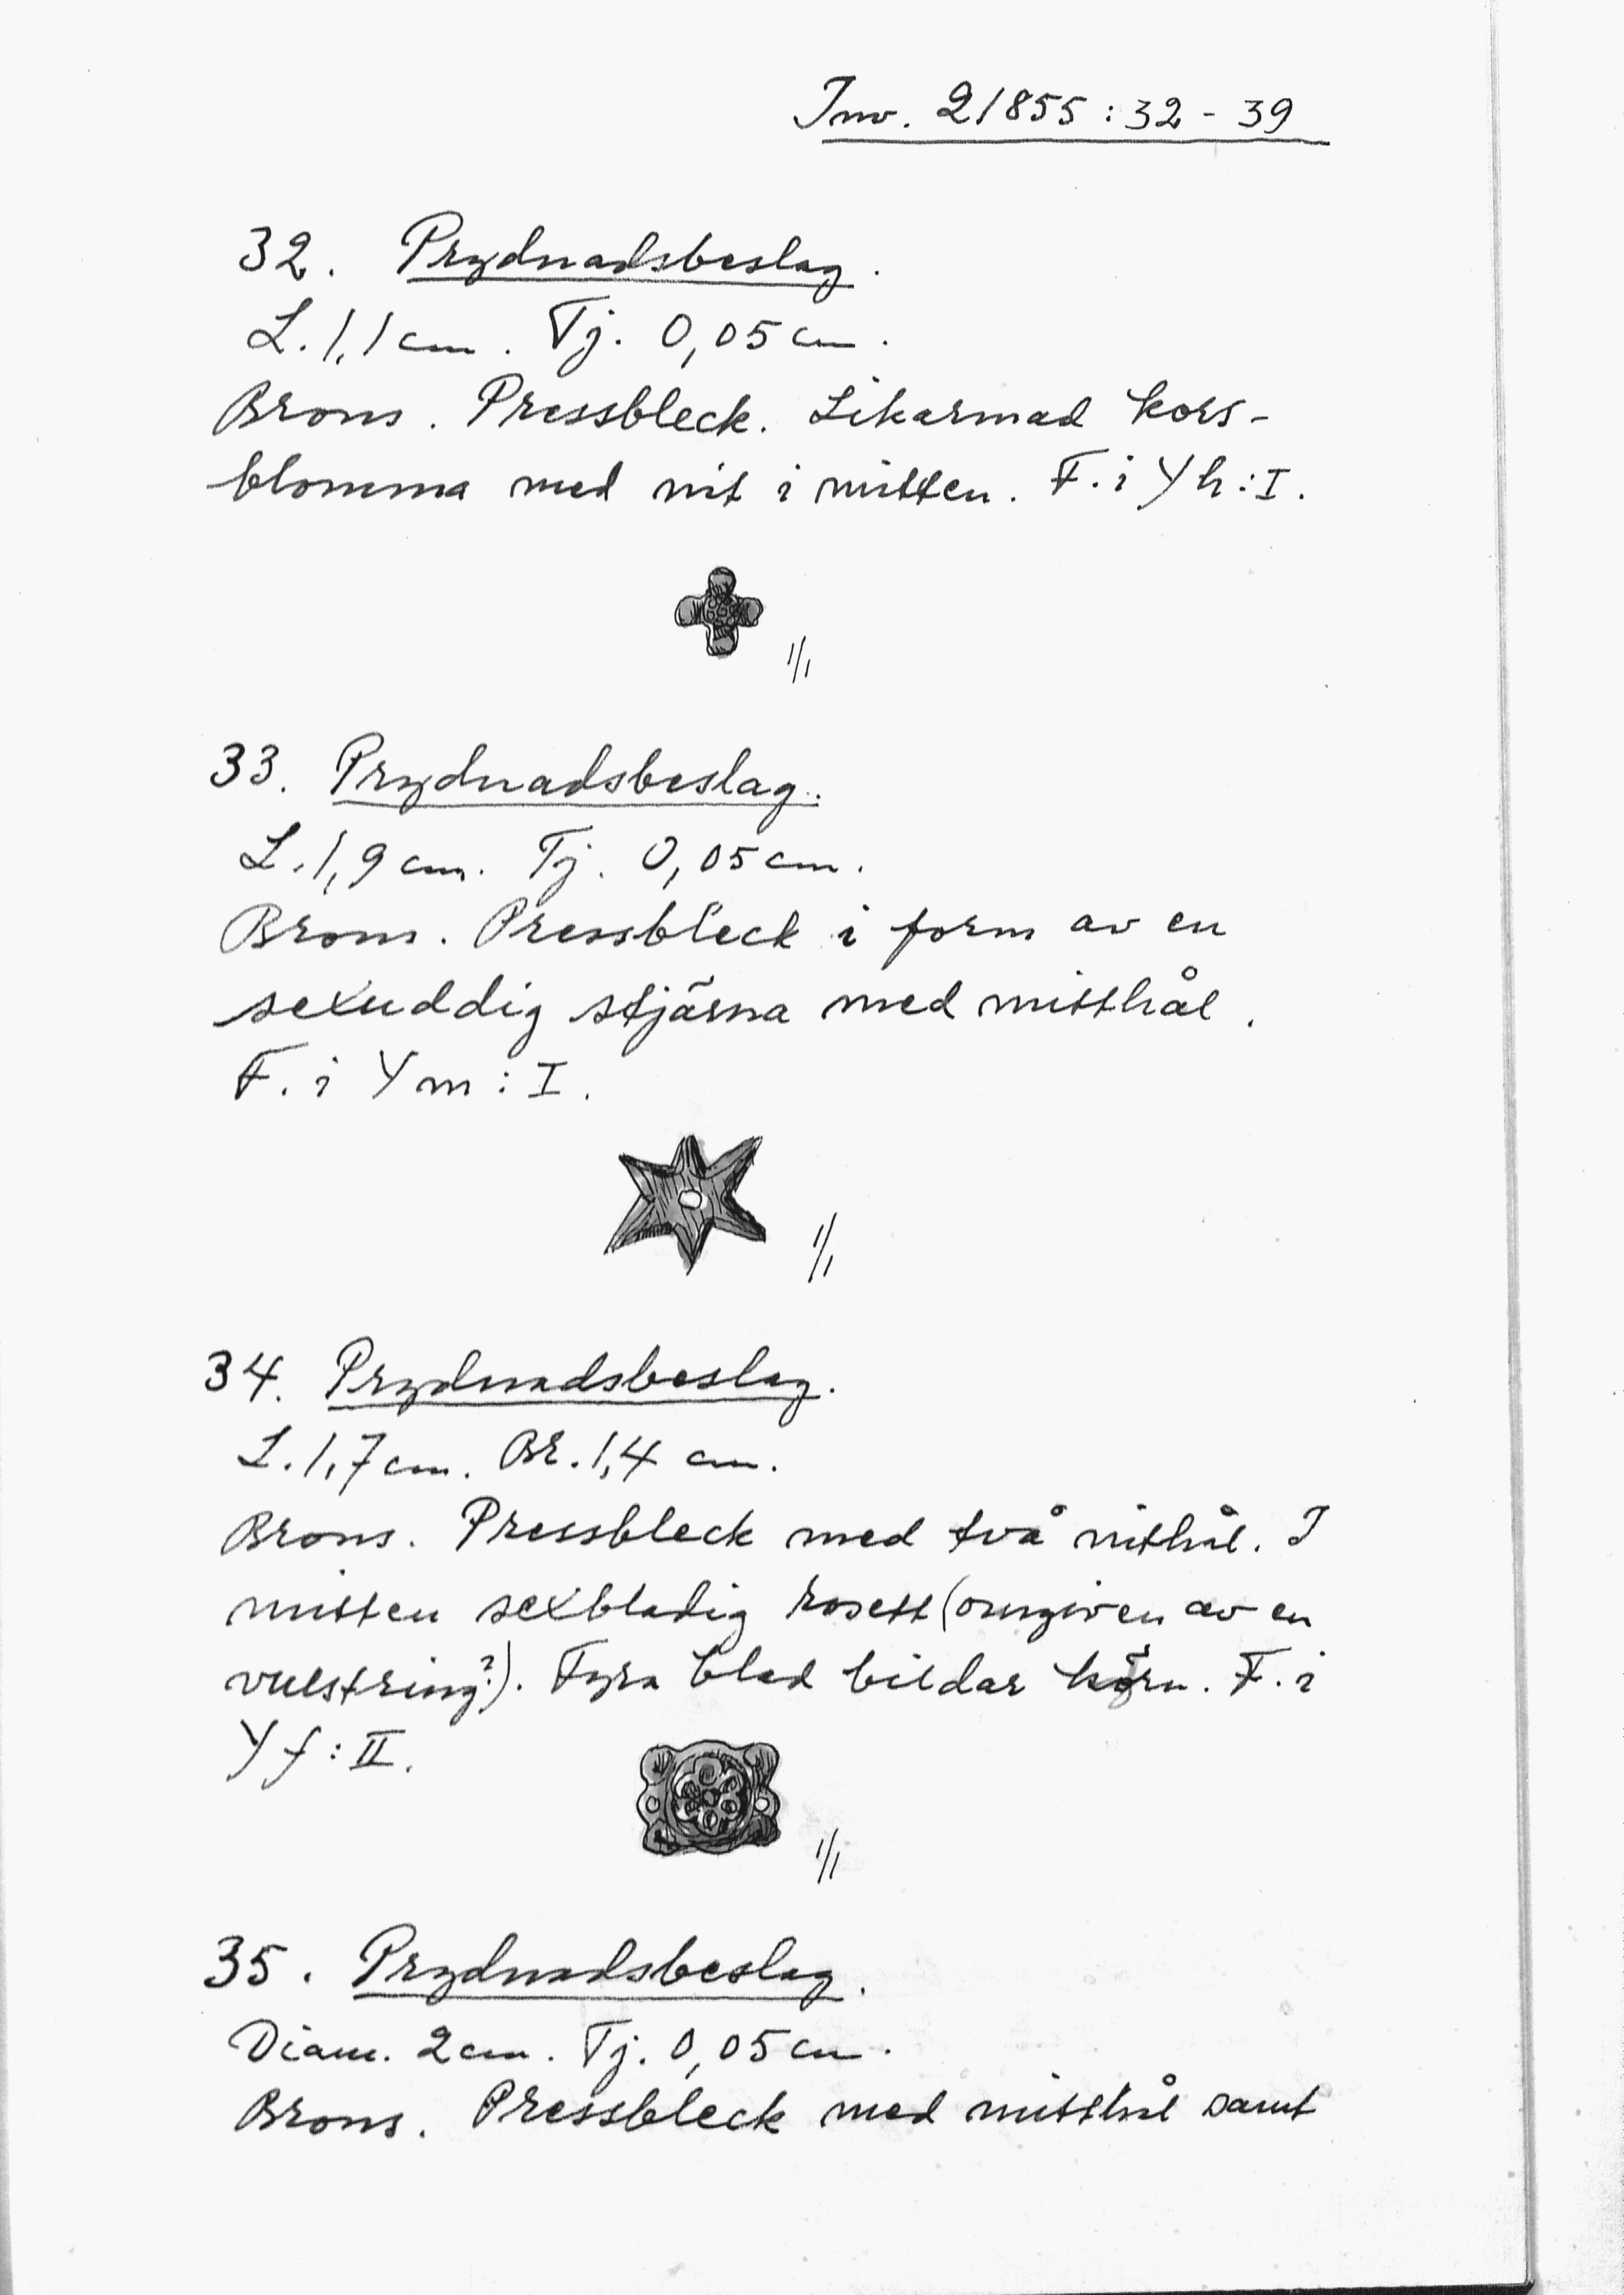 Inv. 21855:32-39
32. Prydnadsbeslag.
L. 1,1 cm. Tj. 0,05 cm.
Brons. Pressbleck. Likarmad kors-
blomma med nit i mitten. F. i Yh:I.
1/1
33. Prydnadsbeslag.
L. 1,9 cm. Tj. 0,05 cm.
Brons. Pressbleck i form av en
sexuddig stjärna med mitthål.
F. i Ym:I.
1/1
34. Prydnadsbeslag.
L. 1,7 cm. Br. 1,4 cm.
Brons. Pressbleck med två nithål. I
mitten sexbladig rosett (omgiven av en
vulstring?). Fyra blad bildar hörn. F. i
Yf:II.
1/1
35. Prydnadsbeslag.
Diam. 2 cm. Tj. 0,05 cm.
Brons. Pressbleck med mitthål samt